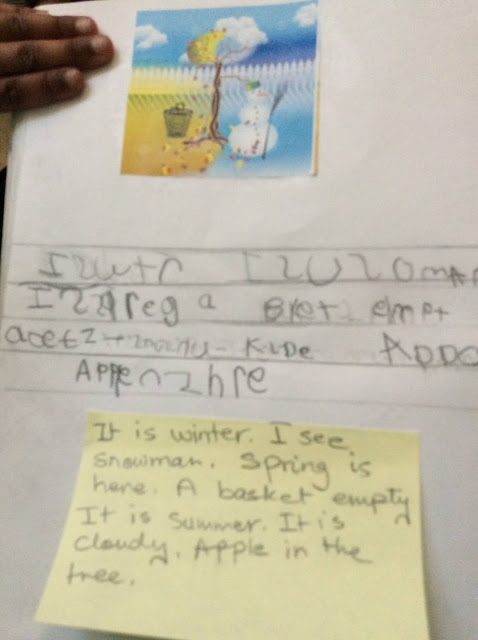 IZWtr I ZUZ0mAn
IZZAreg a BKet empt
KlDe
APPe n Z hre
It is winter. I see
snowman. Spring is
here. A basket empty
It is summer. It is
cloudy. Apple in the
tree.